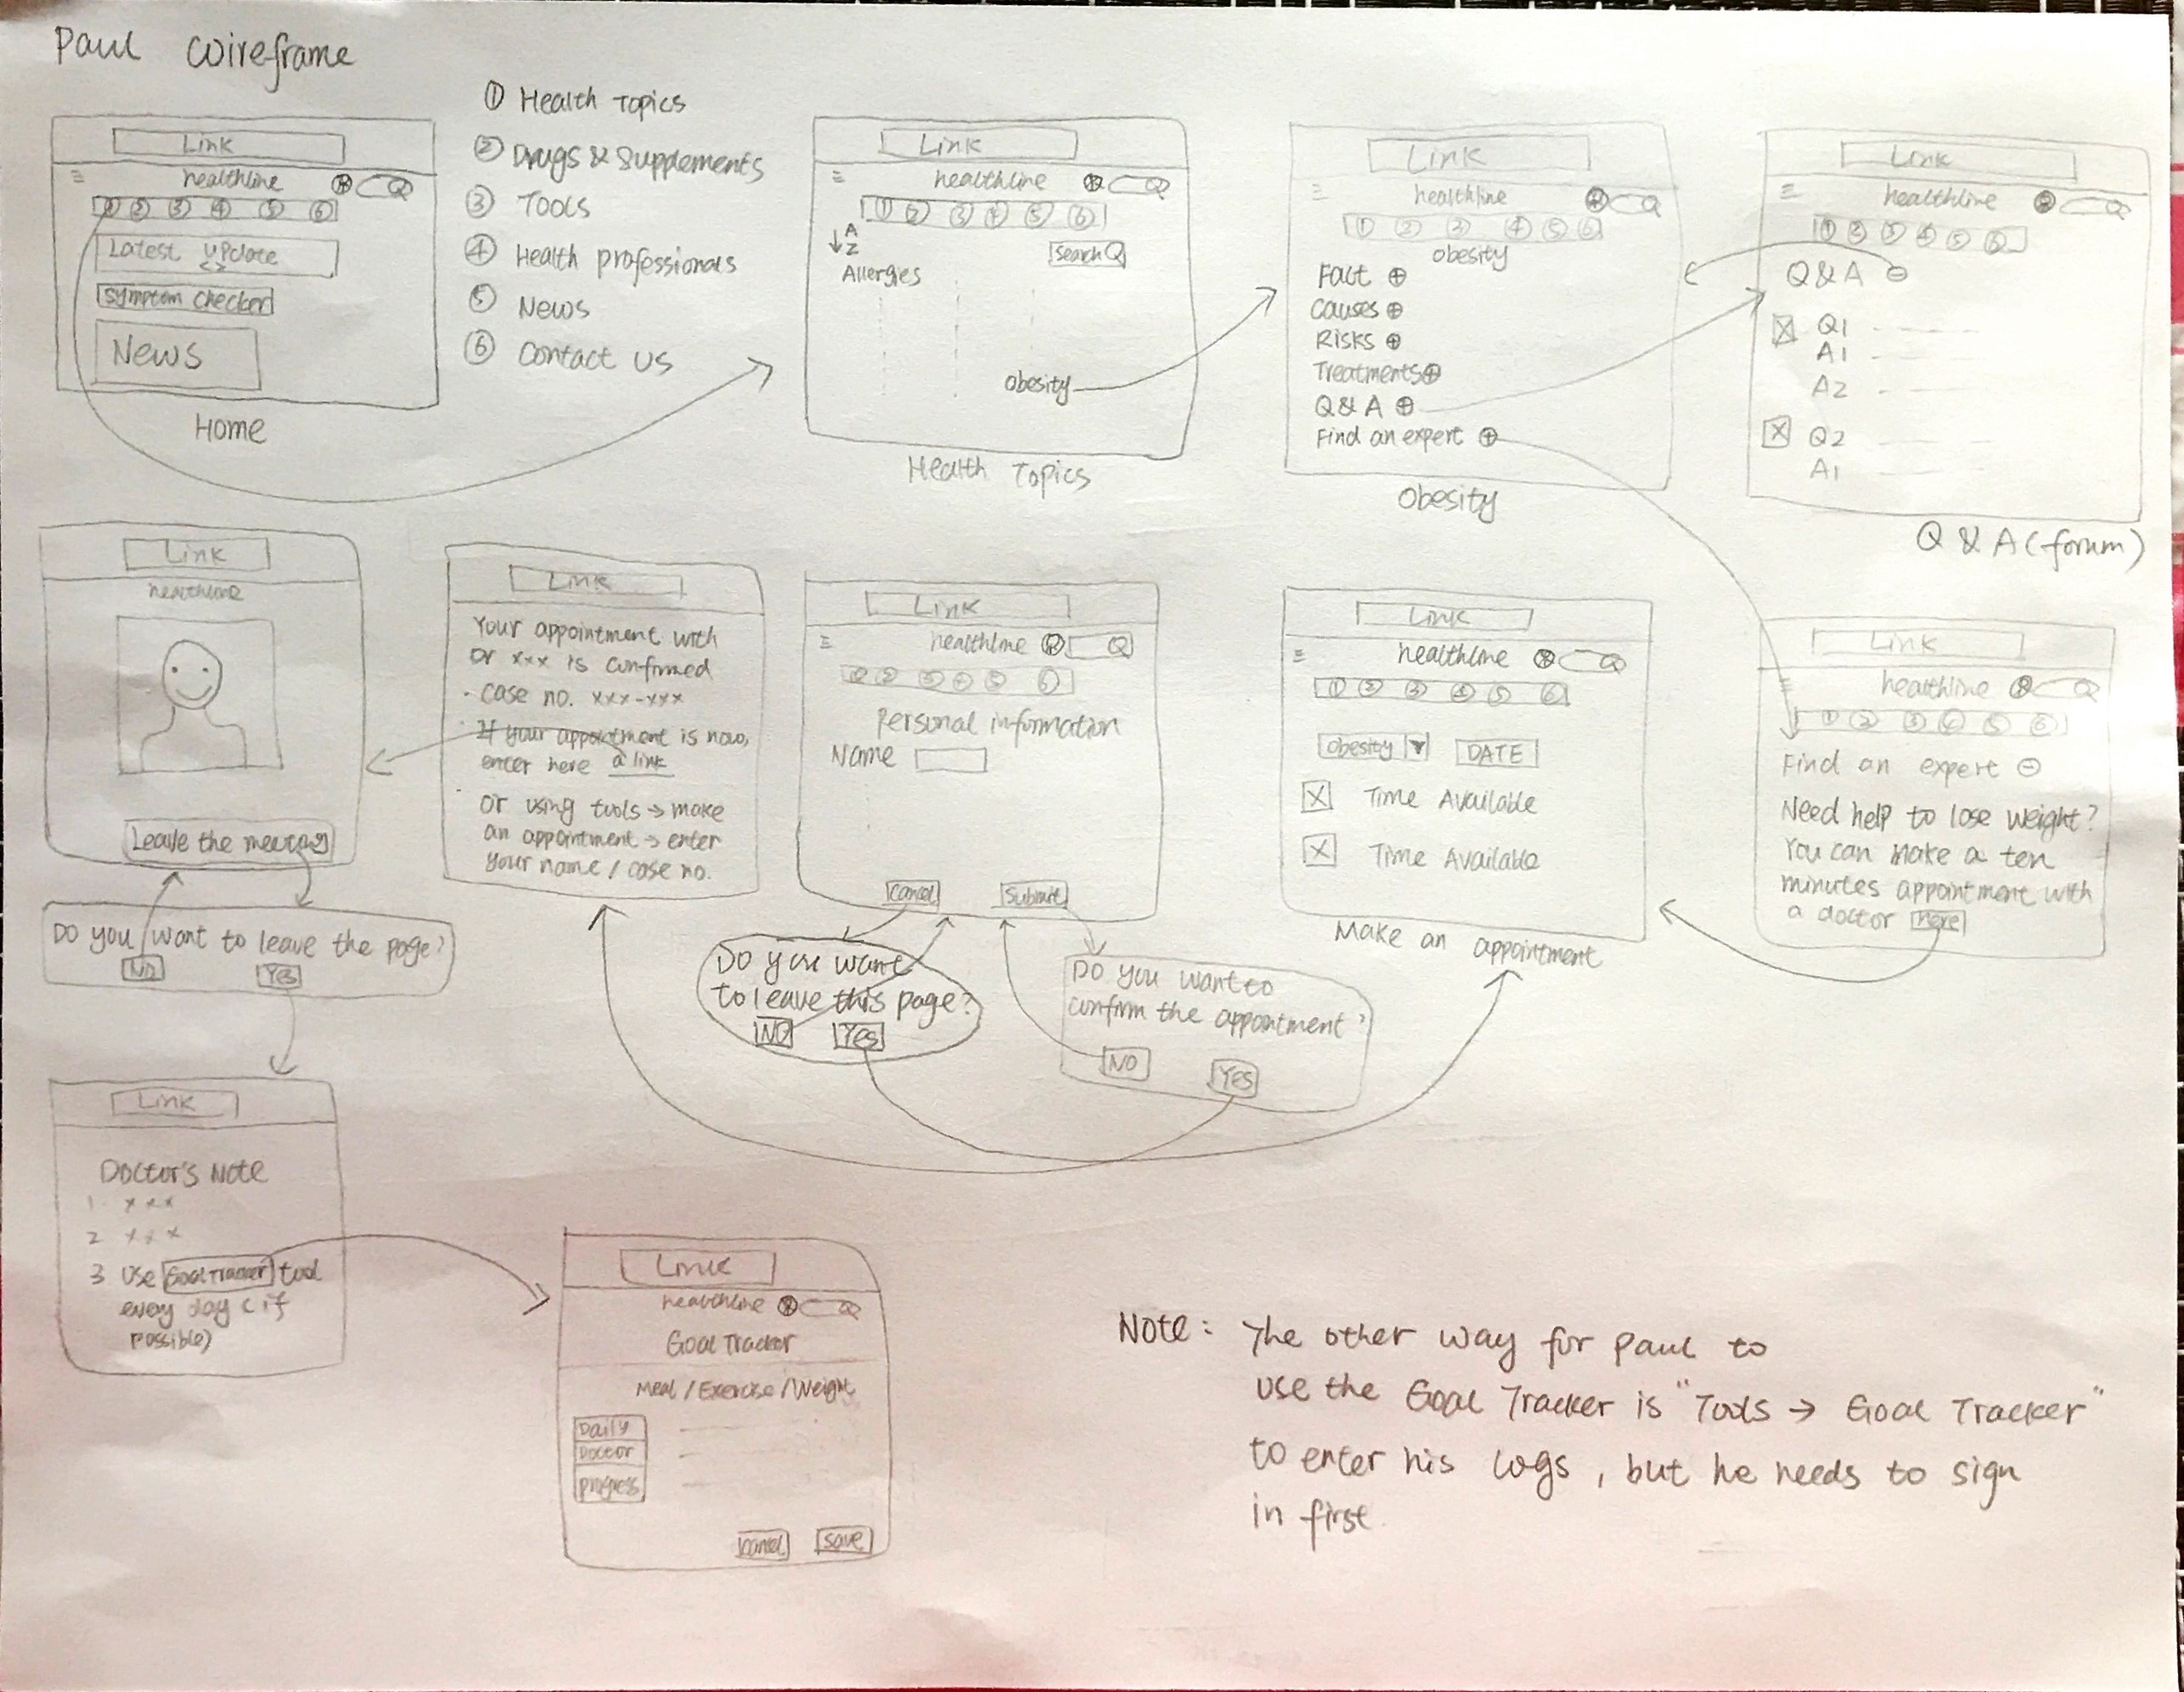 Paul Wireframe
Link
healthline
① ② ③ ④ ⑤ ⑥
Latest update
<>
Symptom checker
News
Home
① Health Topics
② Drugs & Supplements
③ Tools
④ Health professionals
⑤ News
⑥ Contact us
Link
healthline
① ② ③ ④ ⑤ ⑥
A
Z
Search
Allergies
obesity
Health Topics
Link
healthline
① ② ③ ④ ⑤ ⑥
obesity
Fact ⊕
Causes ⊕
Risks ⊕
Treatments ⊕
Q & A ⊕
Find an expert ⊕
Obesity
Link
healthline
① ② ③ ④ ⑤ ⑥
Q & A ⊖
Q1
A1
A2
Q2
A1
Q & A (forum)
Link
healthline
Leave the meeting
Do you want to leave the page?
NO YES
Link
Your appointment with
Dr xxx is confirmed
- case no. xxx-xxx
· If your appointment is now,
enter here a link
· or using tools → make
an appointment → enter
your name / case no.
Link
healthline
① ② ③ ④ ⑤ ⑥
Personal information
Name
Cancel Submit
Do you want
to leave this page?
NO YES
Do you want to
confirm the appointment?
NO YES
Link
healthline
① ② ③ ④ ⑤ ⑥
obesity DATE
Time Available
Time Available
Make an appointment
Link
healthline
① ② ③ ④ ⑤ ⑥
Find an expert ⊖
Need help to lose weight?
You can make a ten
minutes appointment with
a doctor here
Link
Doctor's Note
1. xxx
2 xxx
3 Use Goal Tracker tool
every day (if
possible)
Link
healthline
Goal Tracker
Meal / Exercise / Weight
Daily
Doctor
progress
Cancel Save
Note: The other way for Paul to
use the Goal Tracker is "Tools → Goal Tracker"
to enter his logs, but he needs to sign
in first.